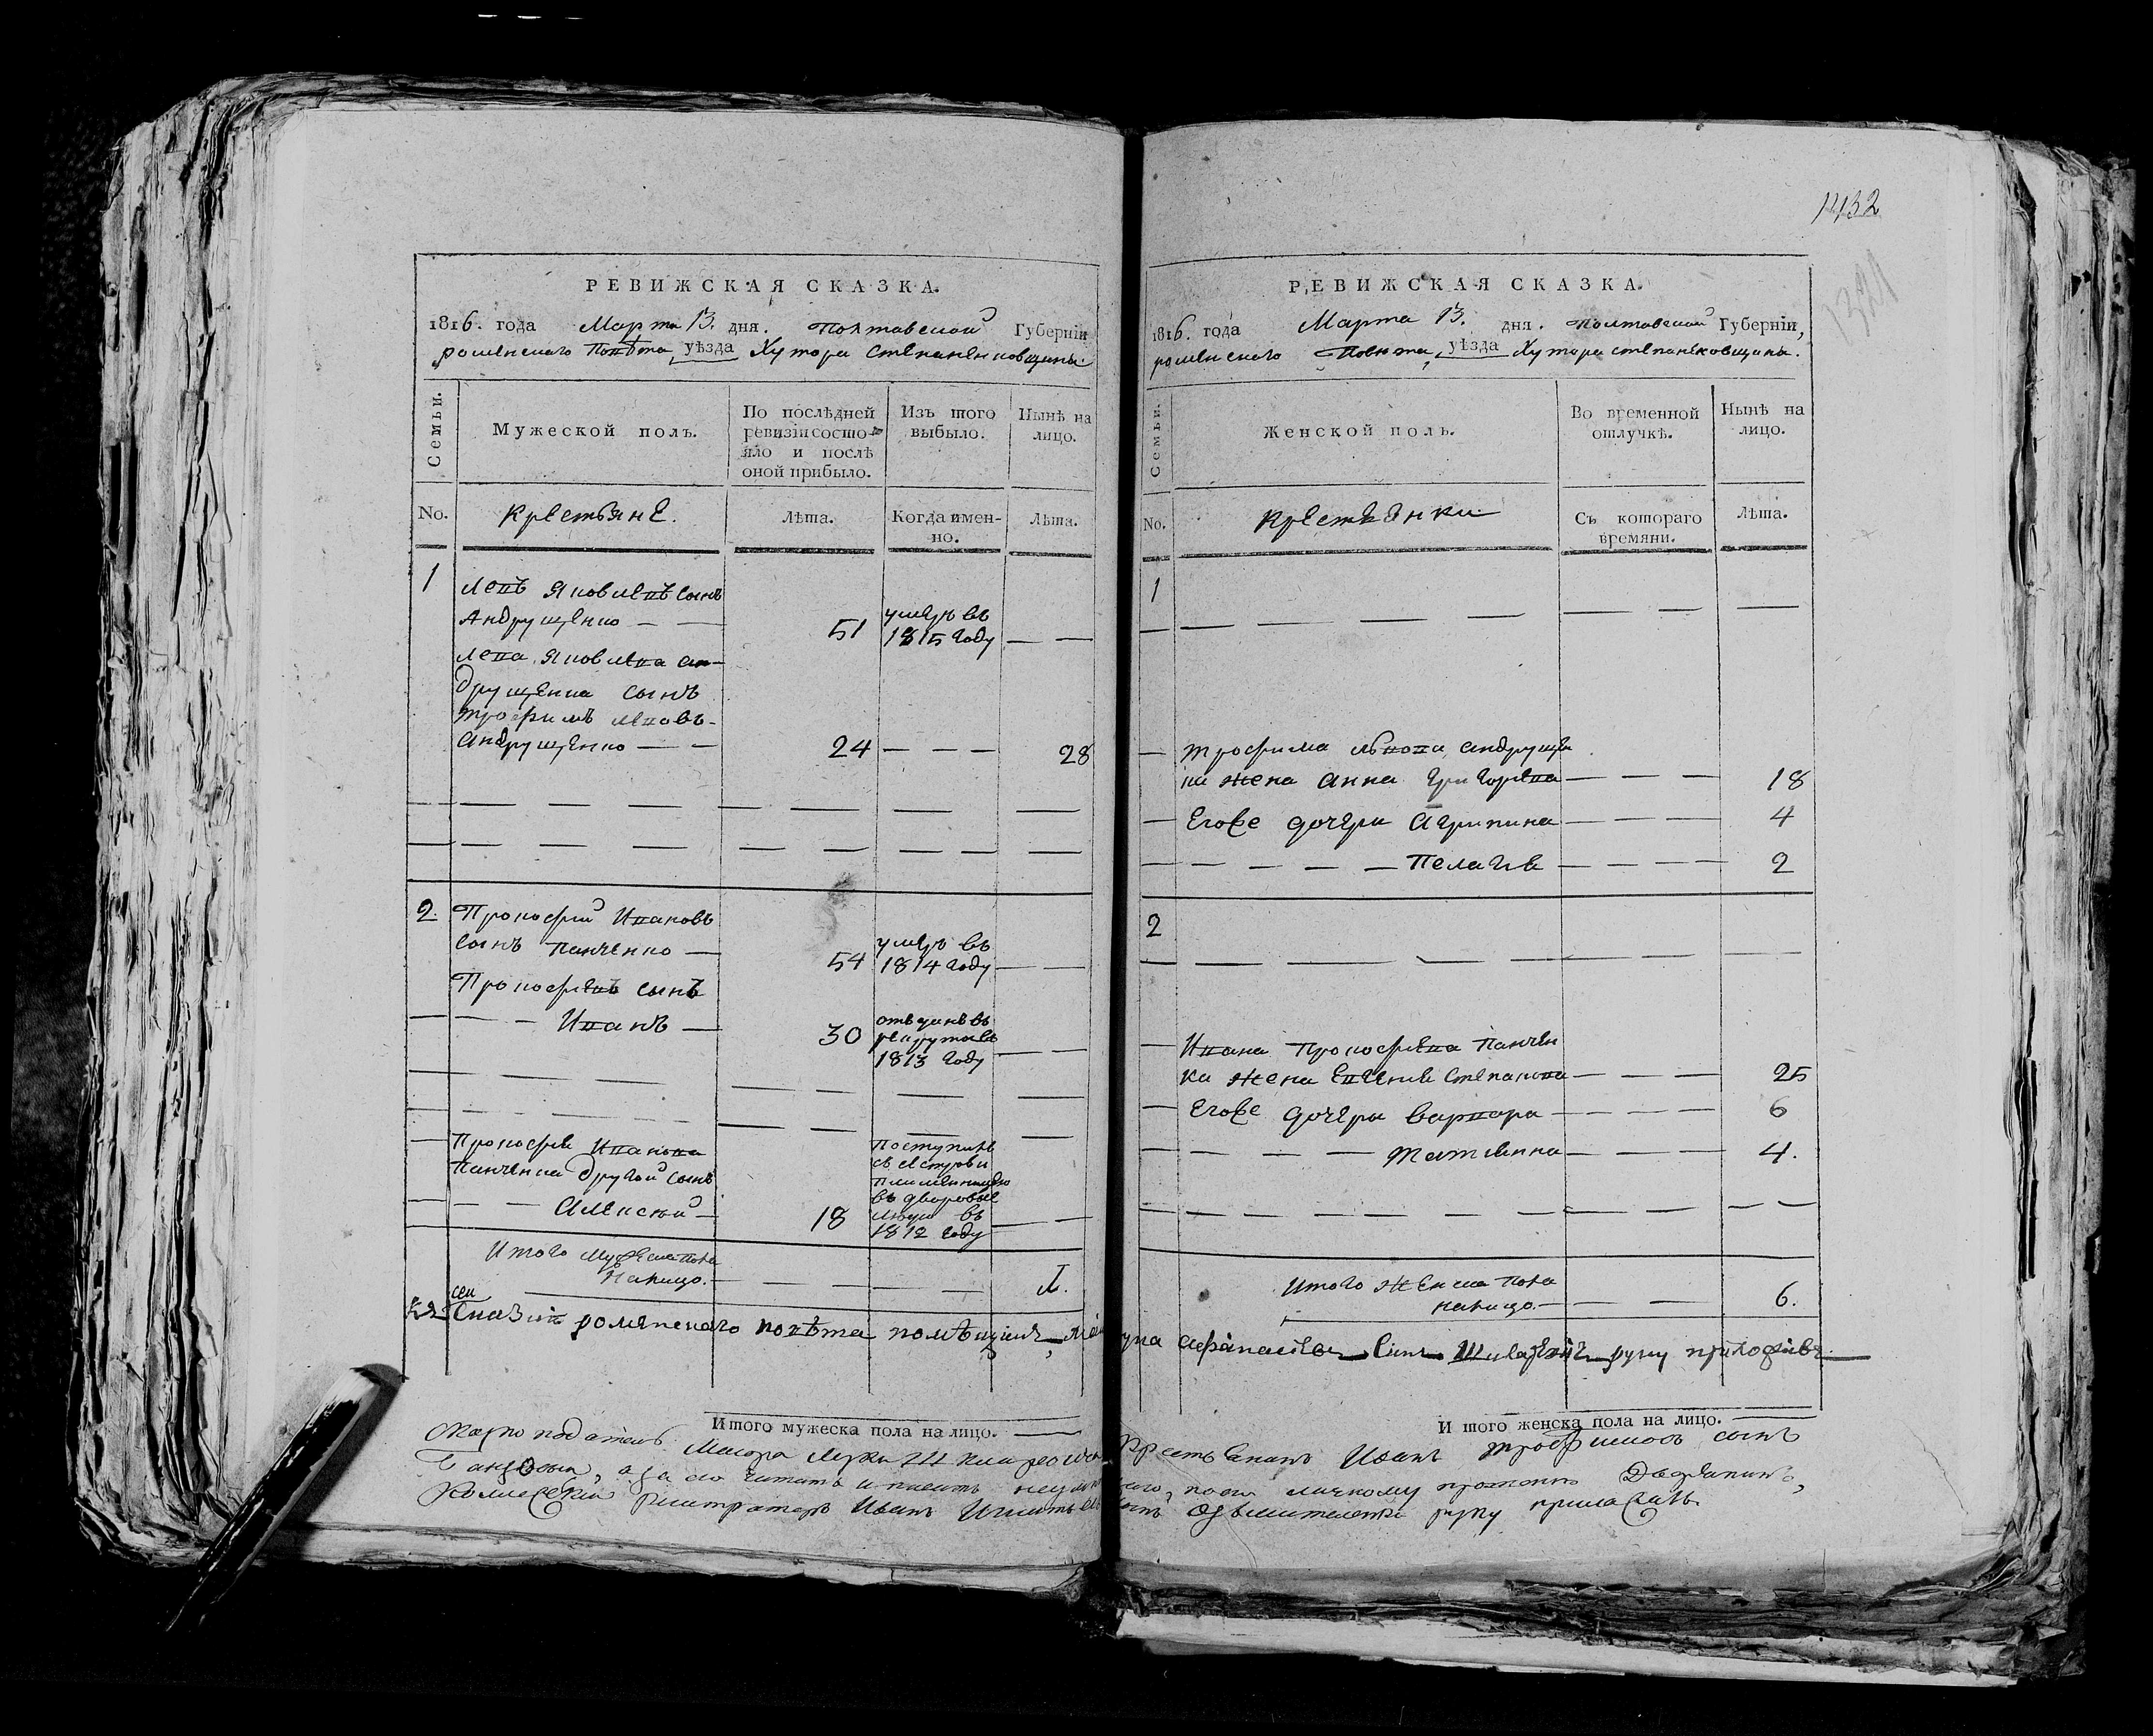 1432
1321
РЕВИЖСКАЯ СКАЗКА.
1816. года Марта 13. дня. Полтавской Губернїи
роменского Повѣта, уѣзда Хутора степаненковщины.
Семьи.
Мужеской полъ.
По послѣдней ревизїи состояло и послѣ оной прибыло.
Изъ того выбыло.
Нынѣ на лицо.
No.
крестьяне.
Лѣта.
Когда именно.
Лѣта.
1
Левъ Яковлевъ сынъ
Андрущенко — — 51 умеръ въ 1815 году — —
Лева Яковлева Ан-
друщенка сынъ
трофимъ Лвовъ-
Андрущенко — — 24 — — — 28
2. Прокофий Ивановъ
сынъ Панченко — 54 умеръ въ 1814 году — —
Прокофиевъ сынъ
— — — Иванъ — 30 отданъ въ рекруты въ 1813 году — —
Прокофия Иванова
Панченка другой сынъ
— — Алексей — 18 поступилъ
въ дворовые
люди въ
1812 году — —
Итого мужеска пола
налицо. — — — — — 1.
РЕВИЖСКАЯ СКАЗКА.
1816. года Марта 13. дня. Полтавской Губернїи,
роменского Повѣта, уѣзда Хутора степаненковщины.
Семьи.
Женской полъ.
Во временной отлучкѣ.
Нынѣ на лицо.
No.
крестьянки
Съ котораго времяни.
Лѣта.
1
трофима Львова андрущен
ка жена анна Григорева — — — 18
Егоже дочери Агрипина — — — 4
— — — — Пелагея — — — 2
2
Ивана Прокофиева Панчен
ка жена Евгения Степанова — — — 25
Егоже дочери варвара — — — — 6
— — — — татиянна — — — 4.
Итого женска пола
налицо. — — — 6.
К сей Сказкѣ роменского повѣта помѣщикъ
сынъ руку приложилъ
Итого мужеска пола на лицо. —
И того женска пола на лицо. —
Маїора Крестьянинъ Иванъ трофимовъ сынъ
а за его читать и писать
Иванъ руку приложилъ